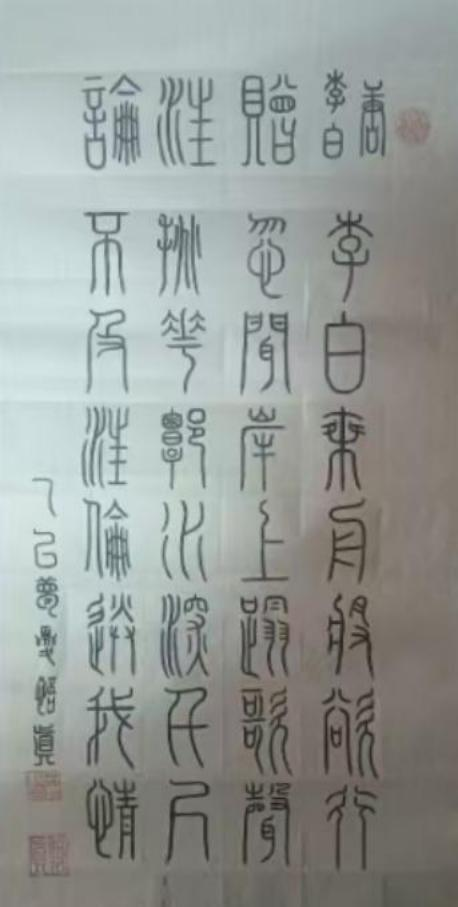 唐
李白
贈汪論
李白乘舟將欲行
忽聞岸上踏歌聲
桃花潭水深千尺
不及汪倫送我情
乙巳